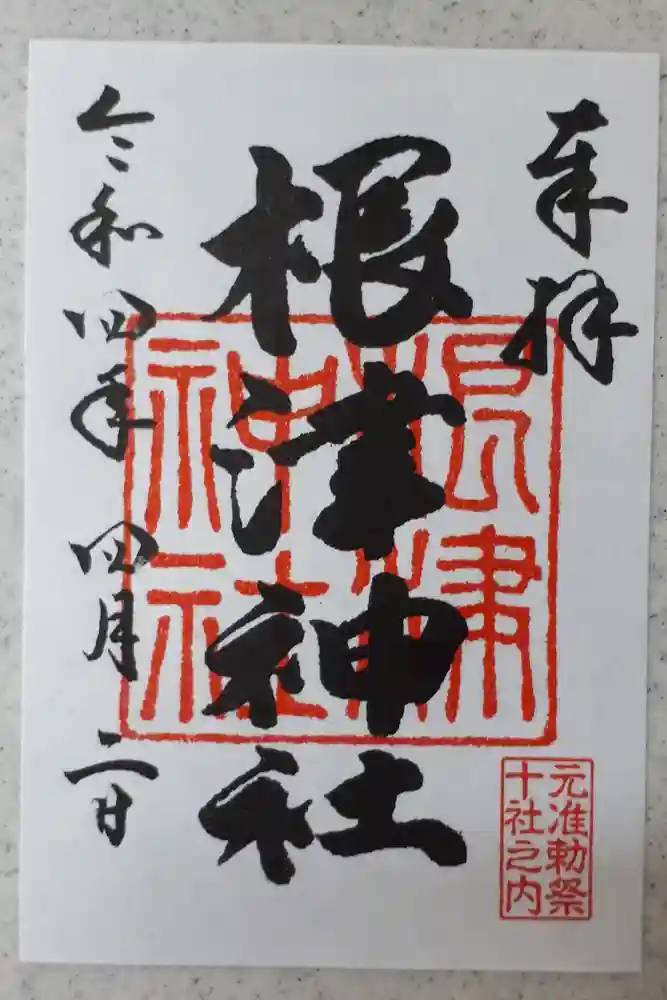 奉拝
根津神社
令和四年四月二日
根津
神社
元准勅祭
十社之内